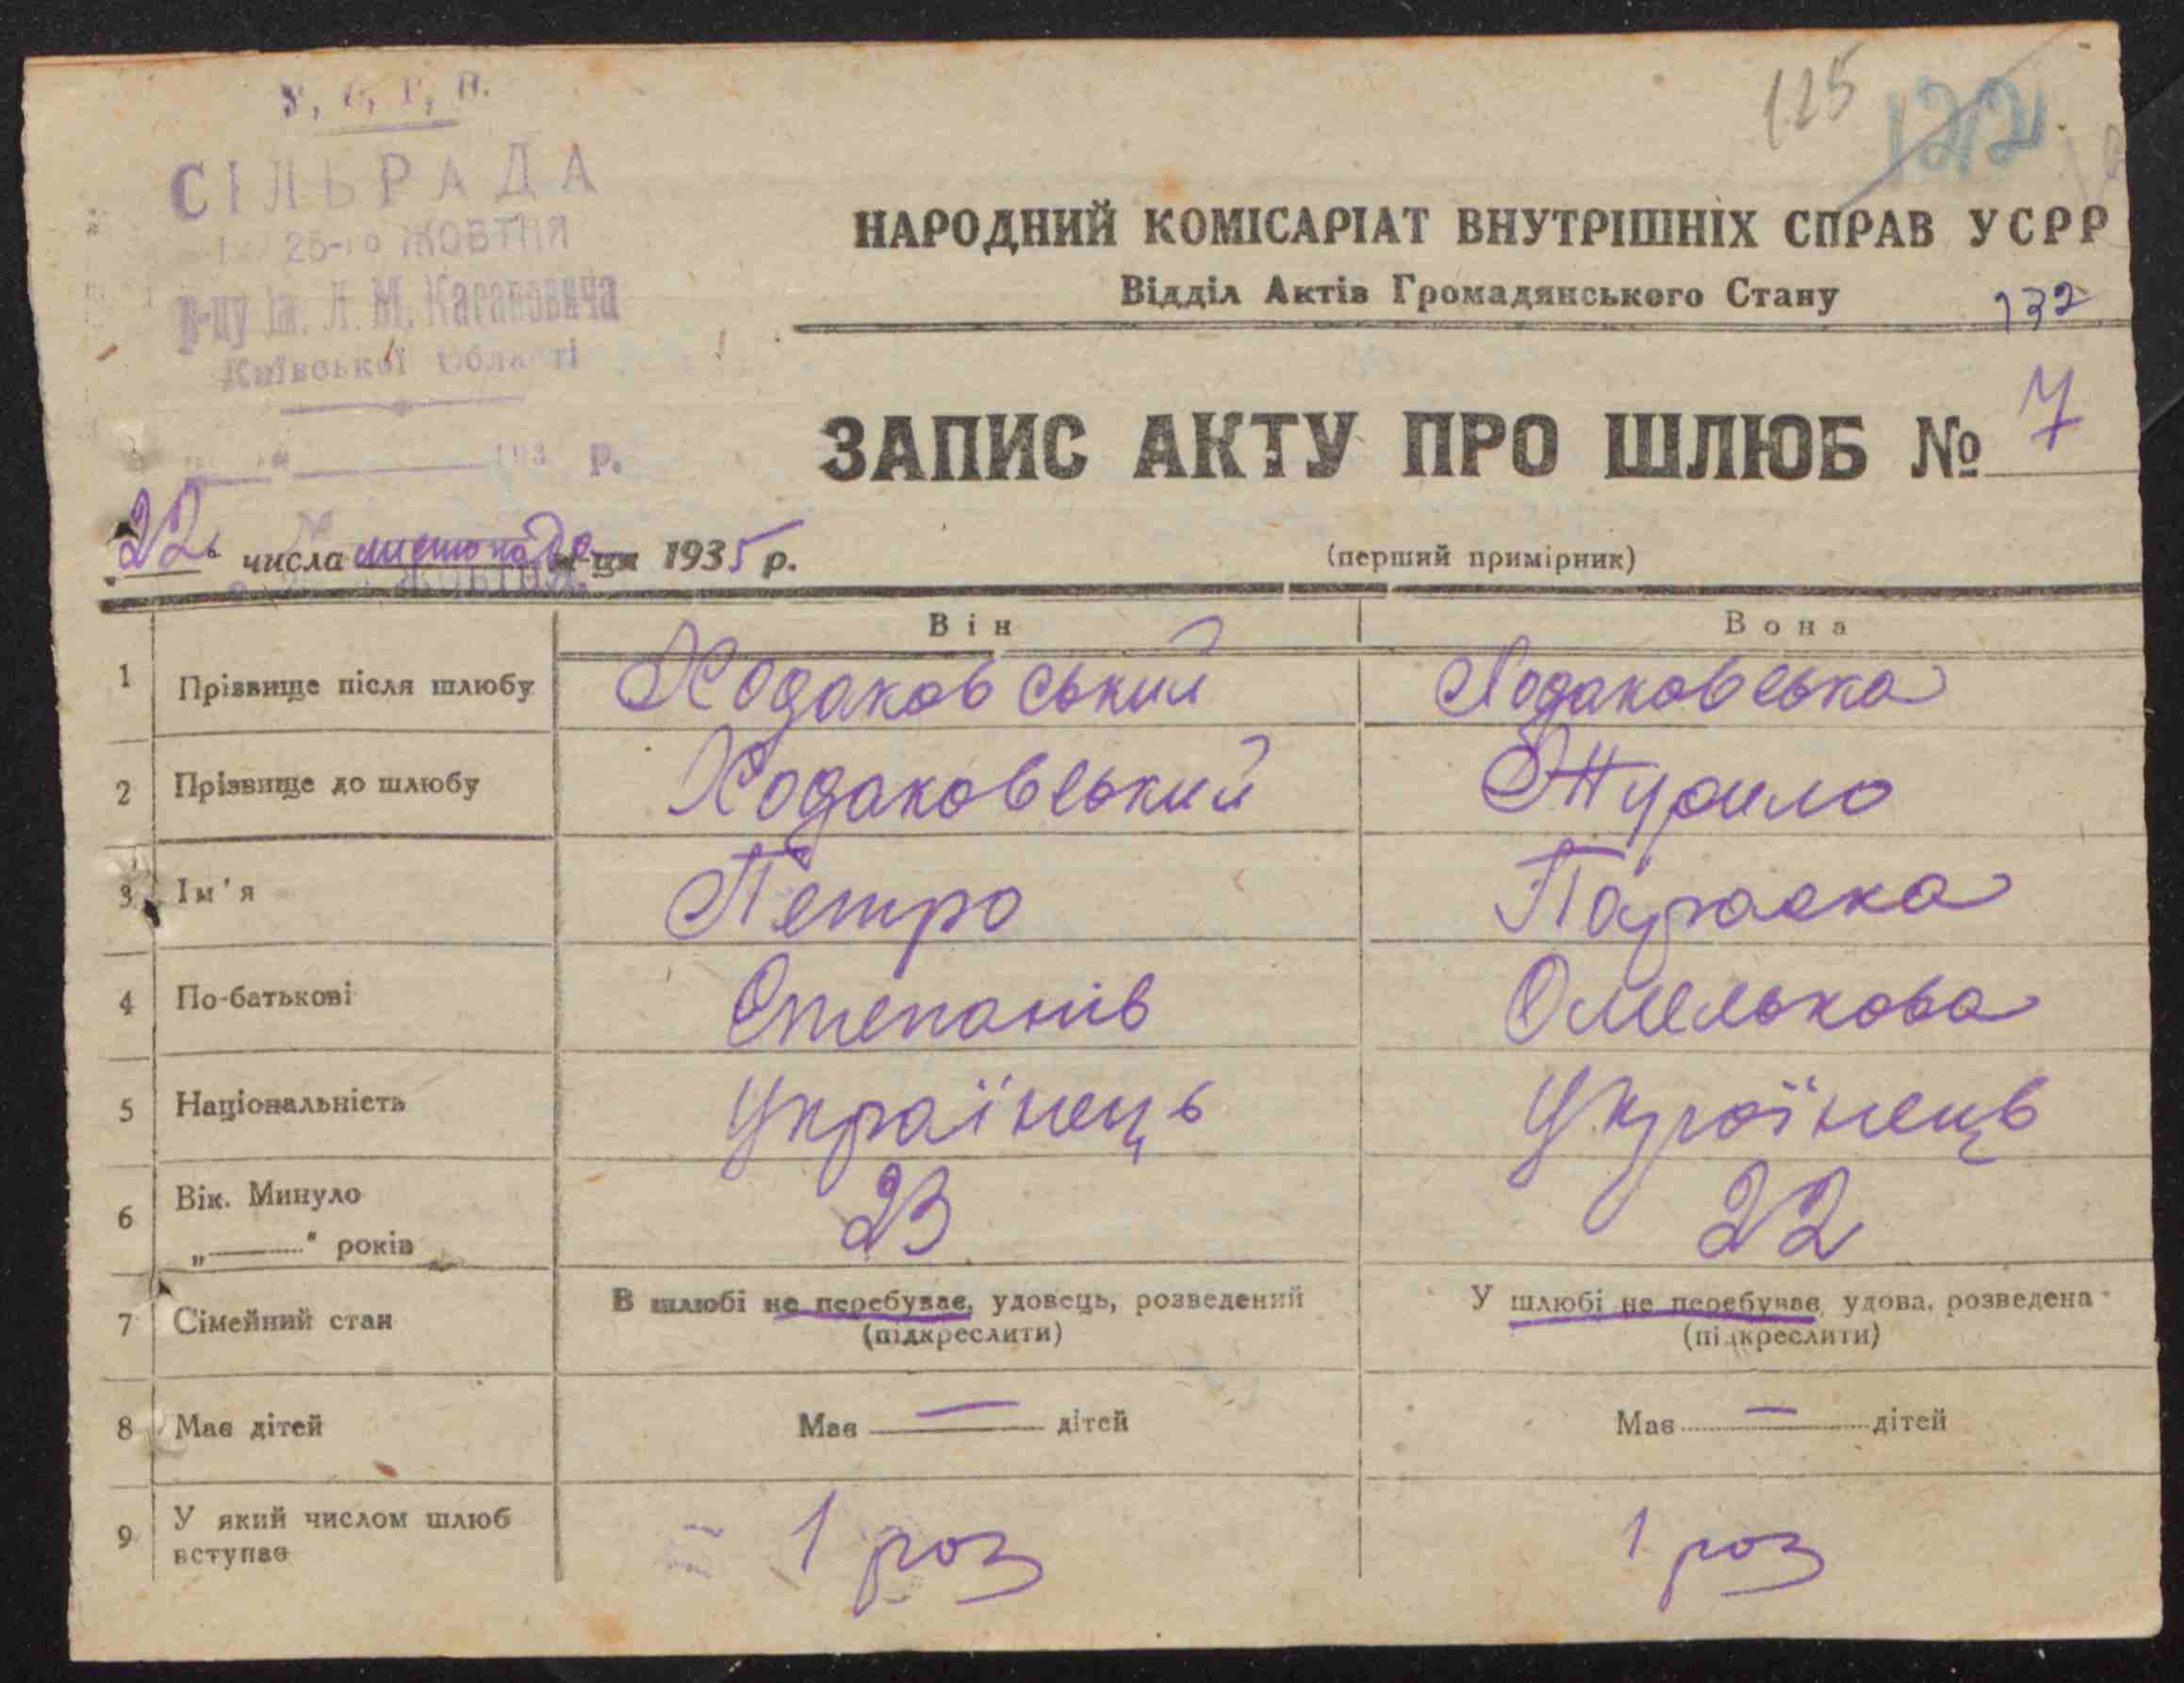 У. С. Р. Р.
СІЛЬРАДА
25-го ЖОВТНЯ
р-ну ім. Л. М. Кагановича
Київської Області
193 р.
125
122
НАРОДНИЙ КОМІСАРІАТ ВНУТРІШНІХ СПРАВ УСРР
Відділ Актів Громадянського Стану
132
ЗАПИС АКТУ ПРО ШЛЮБ № 7
22 числа листопада м-ця 1935 р.
(перший примірник)
Він Вона
1 Прізвище після шлюбу Ходаковський Ходаковська
2 Прізвище до шлюбу Ходаковський Журило
3 Ім'я Петро Параска
4 По-батькові Степанів Омелькова
5 Національність Українець Українець
6 Вік. Минуло
„———" років 23 22
7 Сімейний стан В шлюбі не перебуває, удовець, розведений У шлюбі не перебуває, удова, розведена
(підкреслити) (підкреслити)
8 Має дітей Має — дітей Має — дітей
9 У який числом шлюб
вступає 1 раз 1 раз